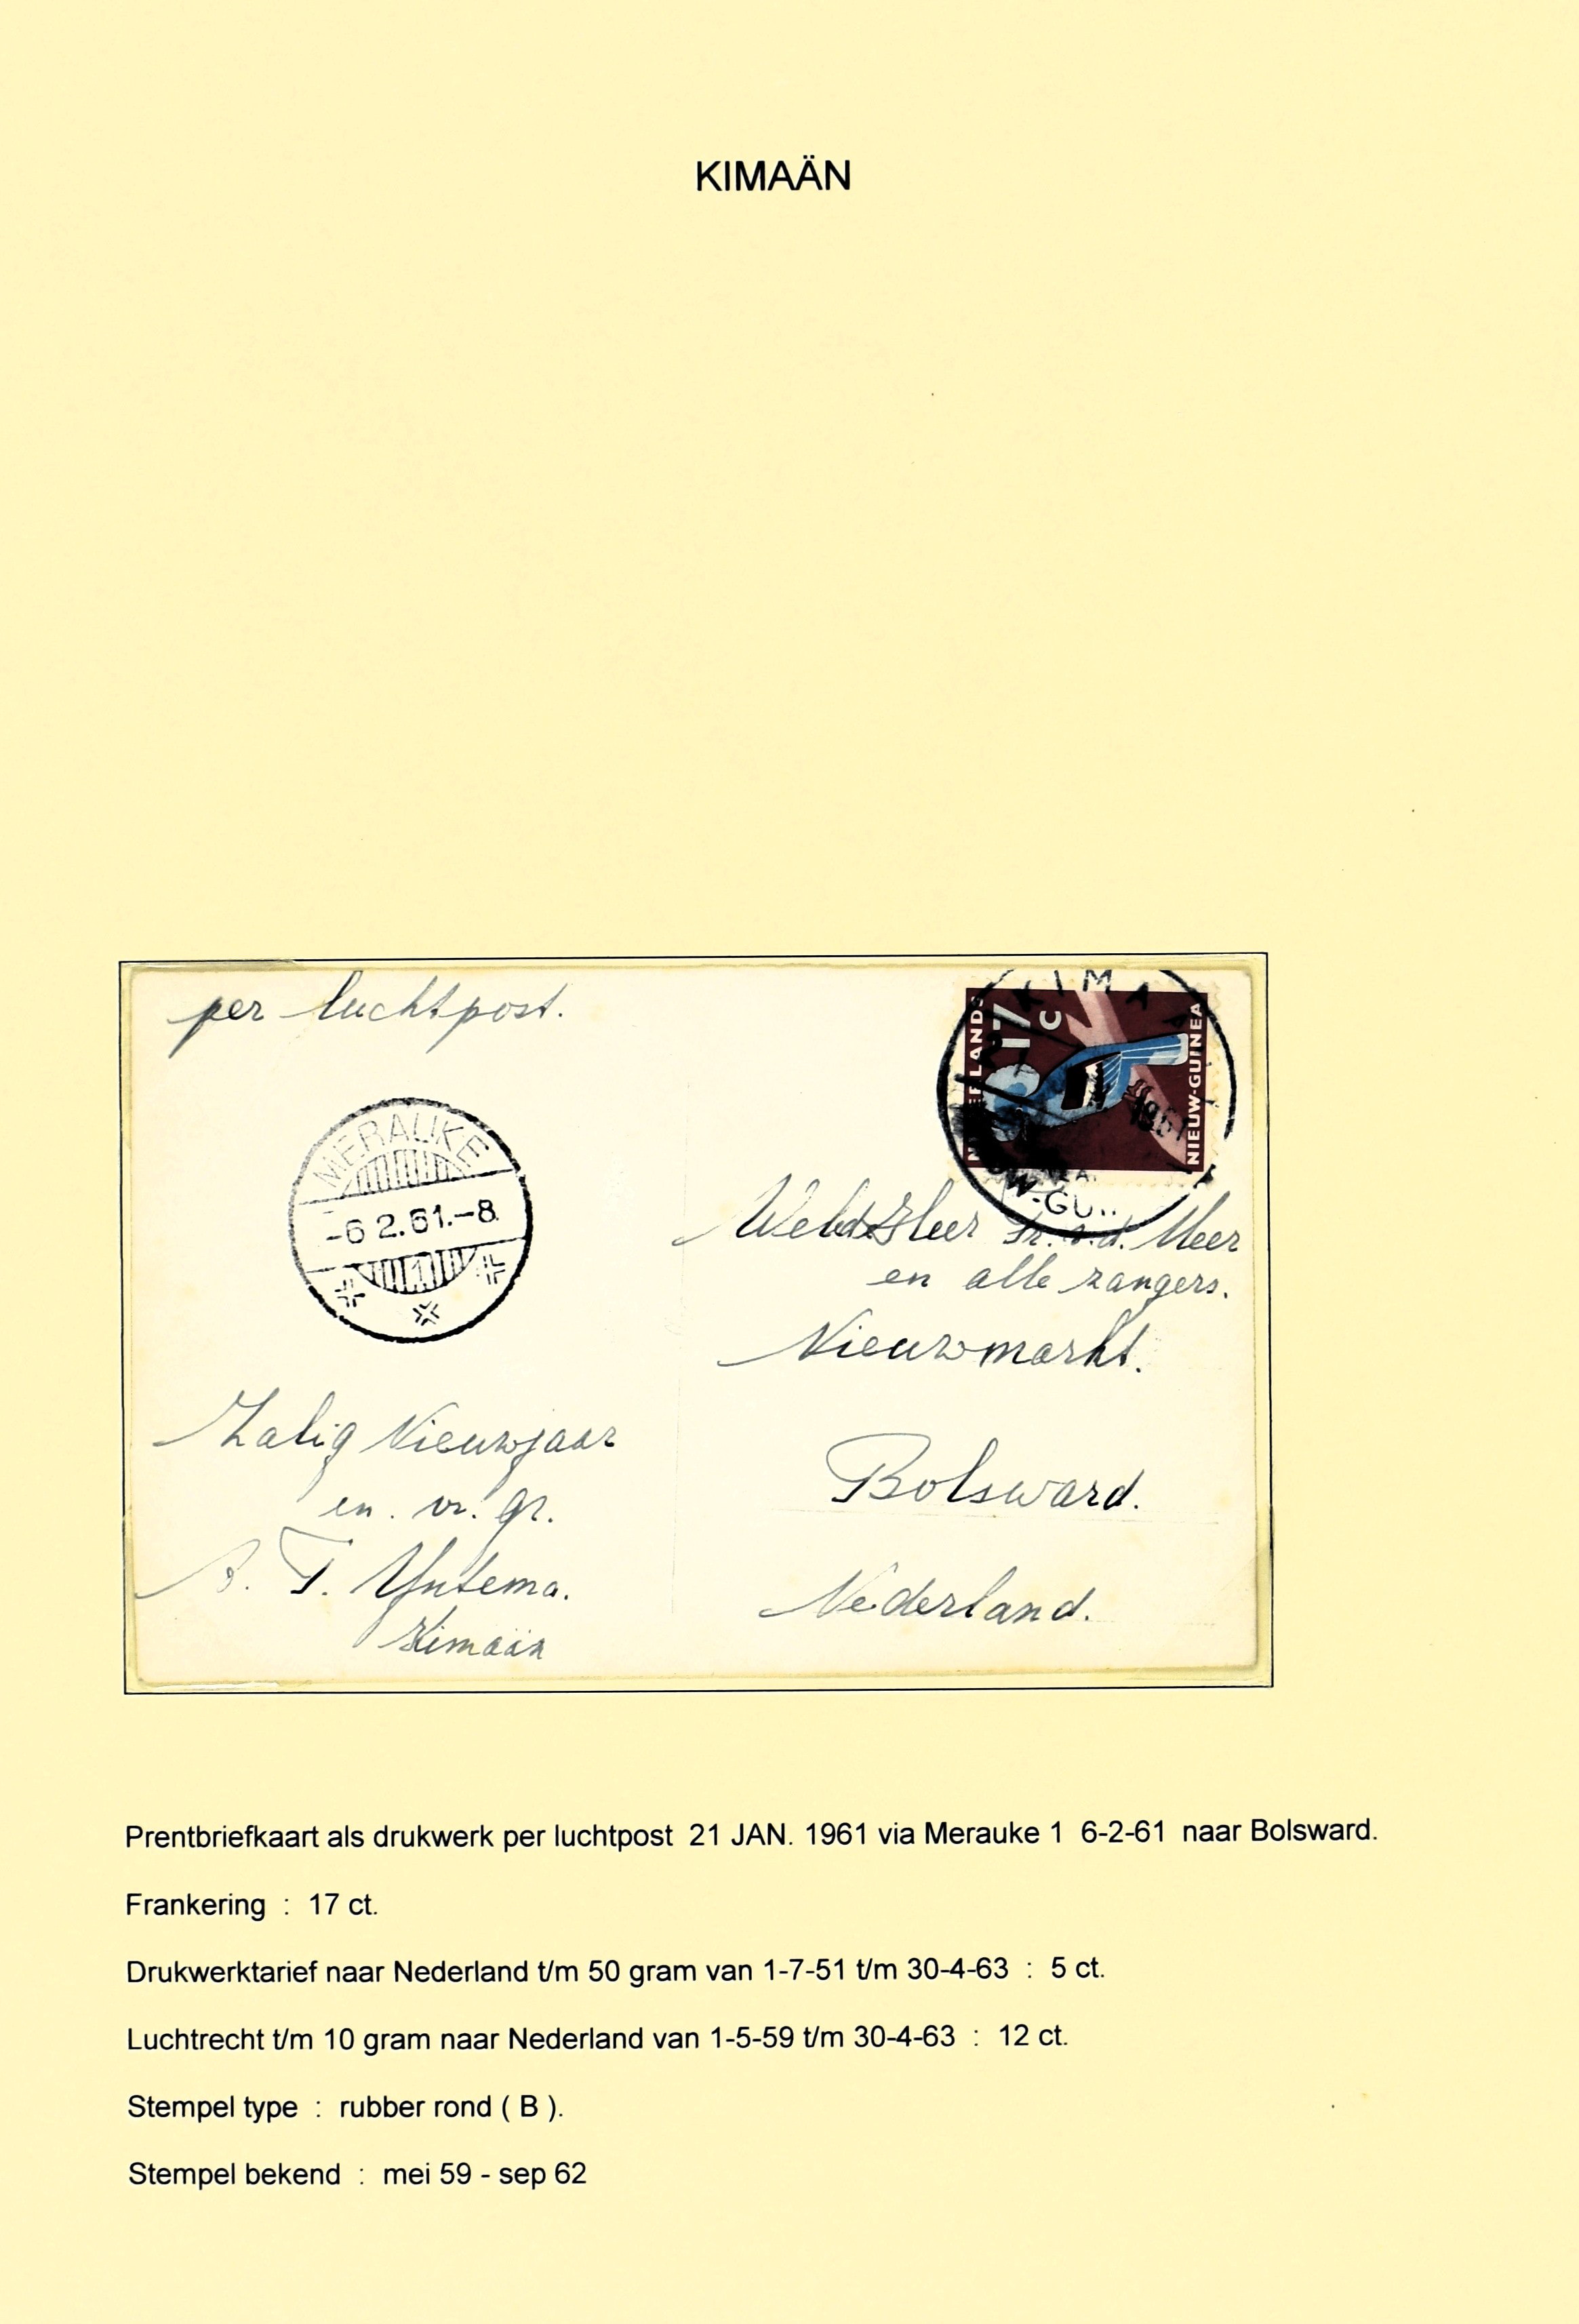 KIMAÄN
per luchtpost.
KIMA
NIEUW-GUINEA
17
C
1961
W-GU
MERAUKE
-6 2.61.-8
1
WeledZHeer Fr. v.d. Meer
en alle zangers.
Nieuwmarkt.
Bolsward.
Nederland.
Zalig Nieuwjaar
en vr. gr.
T. Yntema.
Kimaän
Prentbriefkaart als drukwerk per luchtpost 21 JAN. 1961 via Merauke 1 6-2-61 naar Bolsward.
Frankering : 17 ct.
Drukwerktarief naar Nederland t/m 50 gram van 1-7-51 t/m 30-4-63 : 5 ct.
Luchtrecht t/m 10 gram naar Nederland van 1-5-59 t/m 30-4-63 : 12 ct.
Stempel type : rubber rond ( B ).
Stempel bekend : mei 59 - sep 62